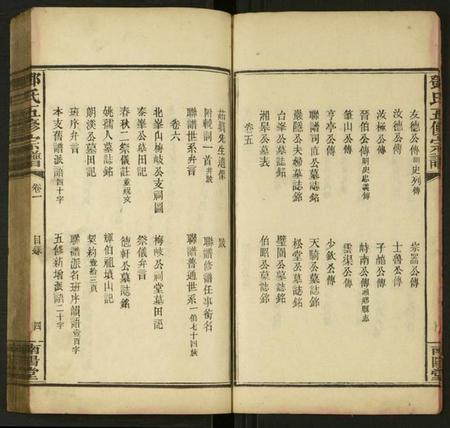 鄧氏五修宗譜
友德公傳明史列傳
宗器公傳
汝德公傳
士魯公傳
汝極公傳
子龍公傳
晉伯公傳
時南公傳
肇山公傳
雲渠公傳
亨亭公傳
少欽公傳
聯譜司直公墓表
天驕公墓誌銘
巖隱公夫婦墓誌銘
松堂公墓誌銘
台峯公墓誌銘
壁園公墓誌銘
湘嵒公墓表
伯昭公墓誌銘
卷五
先生遺像
跋
附輓詞一首并跋
聯譜修譜任事銜名
聯譜世系弁言
聯譜普通世系一佰七十四頁
卷六
北峯山梅岐公支祠圖
梅岐公祠堂墓田記
泰峯公墓田記
祭儀弁言
春秋二祭儀註並祝文
德軒公墓誌銘
姚孺人墓誌銘
輝伯祖墳山記
朗溪公墓田記
契約壹拾三頁
班序弁言
聯譜派名班序韻語壹百字
本支舊譜派語四十字
五修新增派語二十字
鄧氏五修宗譜
卷一
目錄
四
南陽堂
南陽堂